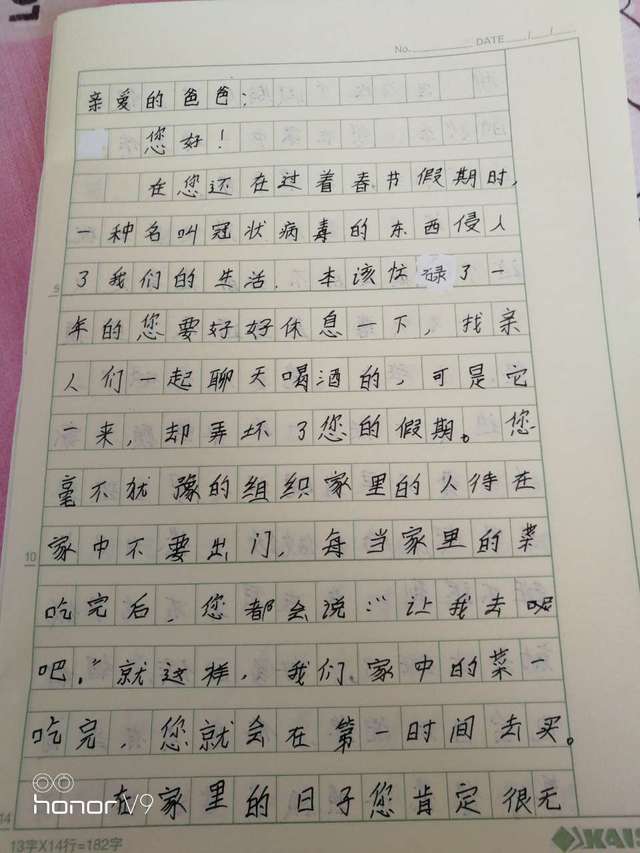 No. DATE / /
亲爱的爸爸:
您好!
在您还在过着春节假期时,
一种名叫冠状病毒的东西侵入
5 了我们的生活. 本该忙禄了一
年的您要好好休息一下, 找亲
人们一起聊天喝酒的, 可是它
一来, 却弄坏了您的假期。您
毫不犹豫的组织家里的人待在
10 家中不要出门, 每当家里的菜
吃完后, 您都会说:“让我去呢
吧.”就这样, 我们家中的菜一
吃完, 您就会在第一时间去买。
14 在家里的日子您肯定很无
honor V9
13字X14行=182字
KAIS